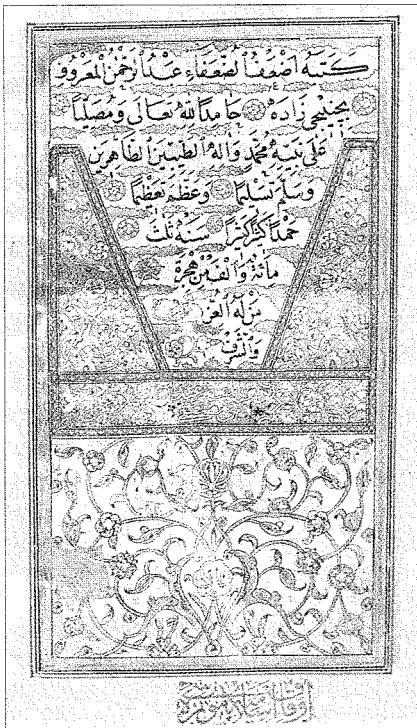 كَتَبَهُ اَضْعَفُ الضُّعَفَاءِ عَبْدُ الرَّحْمٰنِ الْمَعْرُوفُ
زَادَهْ حَامِداً لِلّٰهِ تَعَالَى وَمُصَلِّياً
عَلَى نَبِيِّهِ مُحَمَّدٍ وَاٰلِهِ الطَّيِّبِينَ الطَّاهِرِينَ
وَسَلَّمَ تَسْلِيمًا وَعَظَّمَ تَعْظِيمًا
حَمْداً كَثِيراً سَنَةَ ثَلٰثَ
مِائَةٍ وَاَلْفٍ مِنْ هِجْرَةِ
مَنْ لَهُ الْعِزُّ
وَالشَّرَفُ